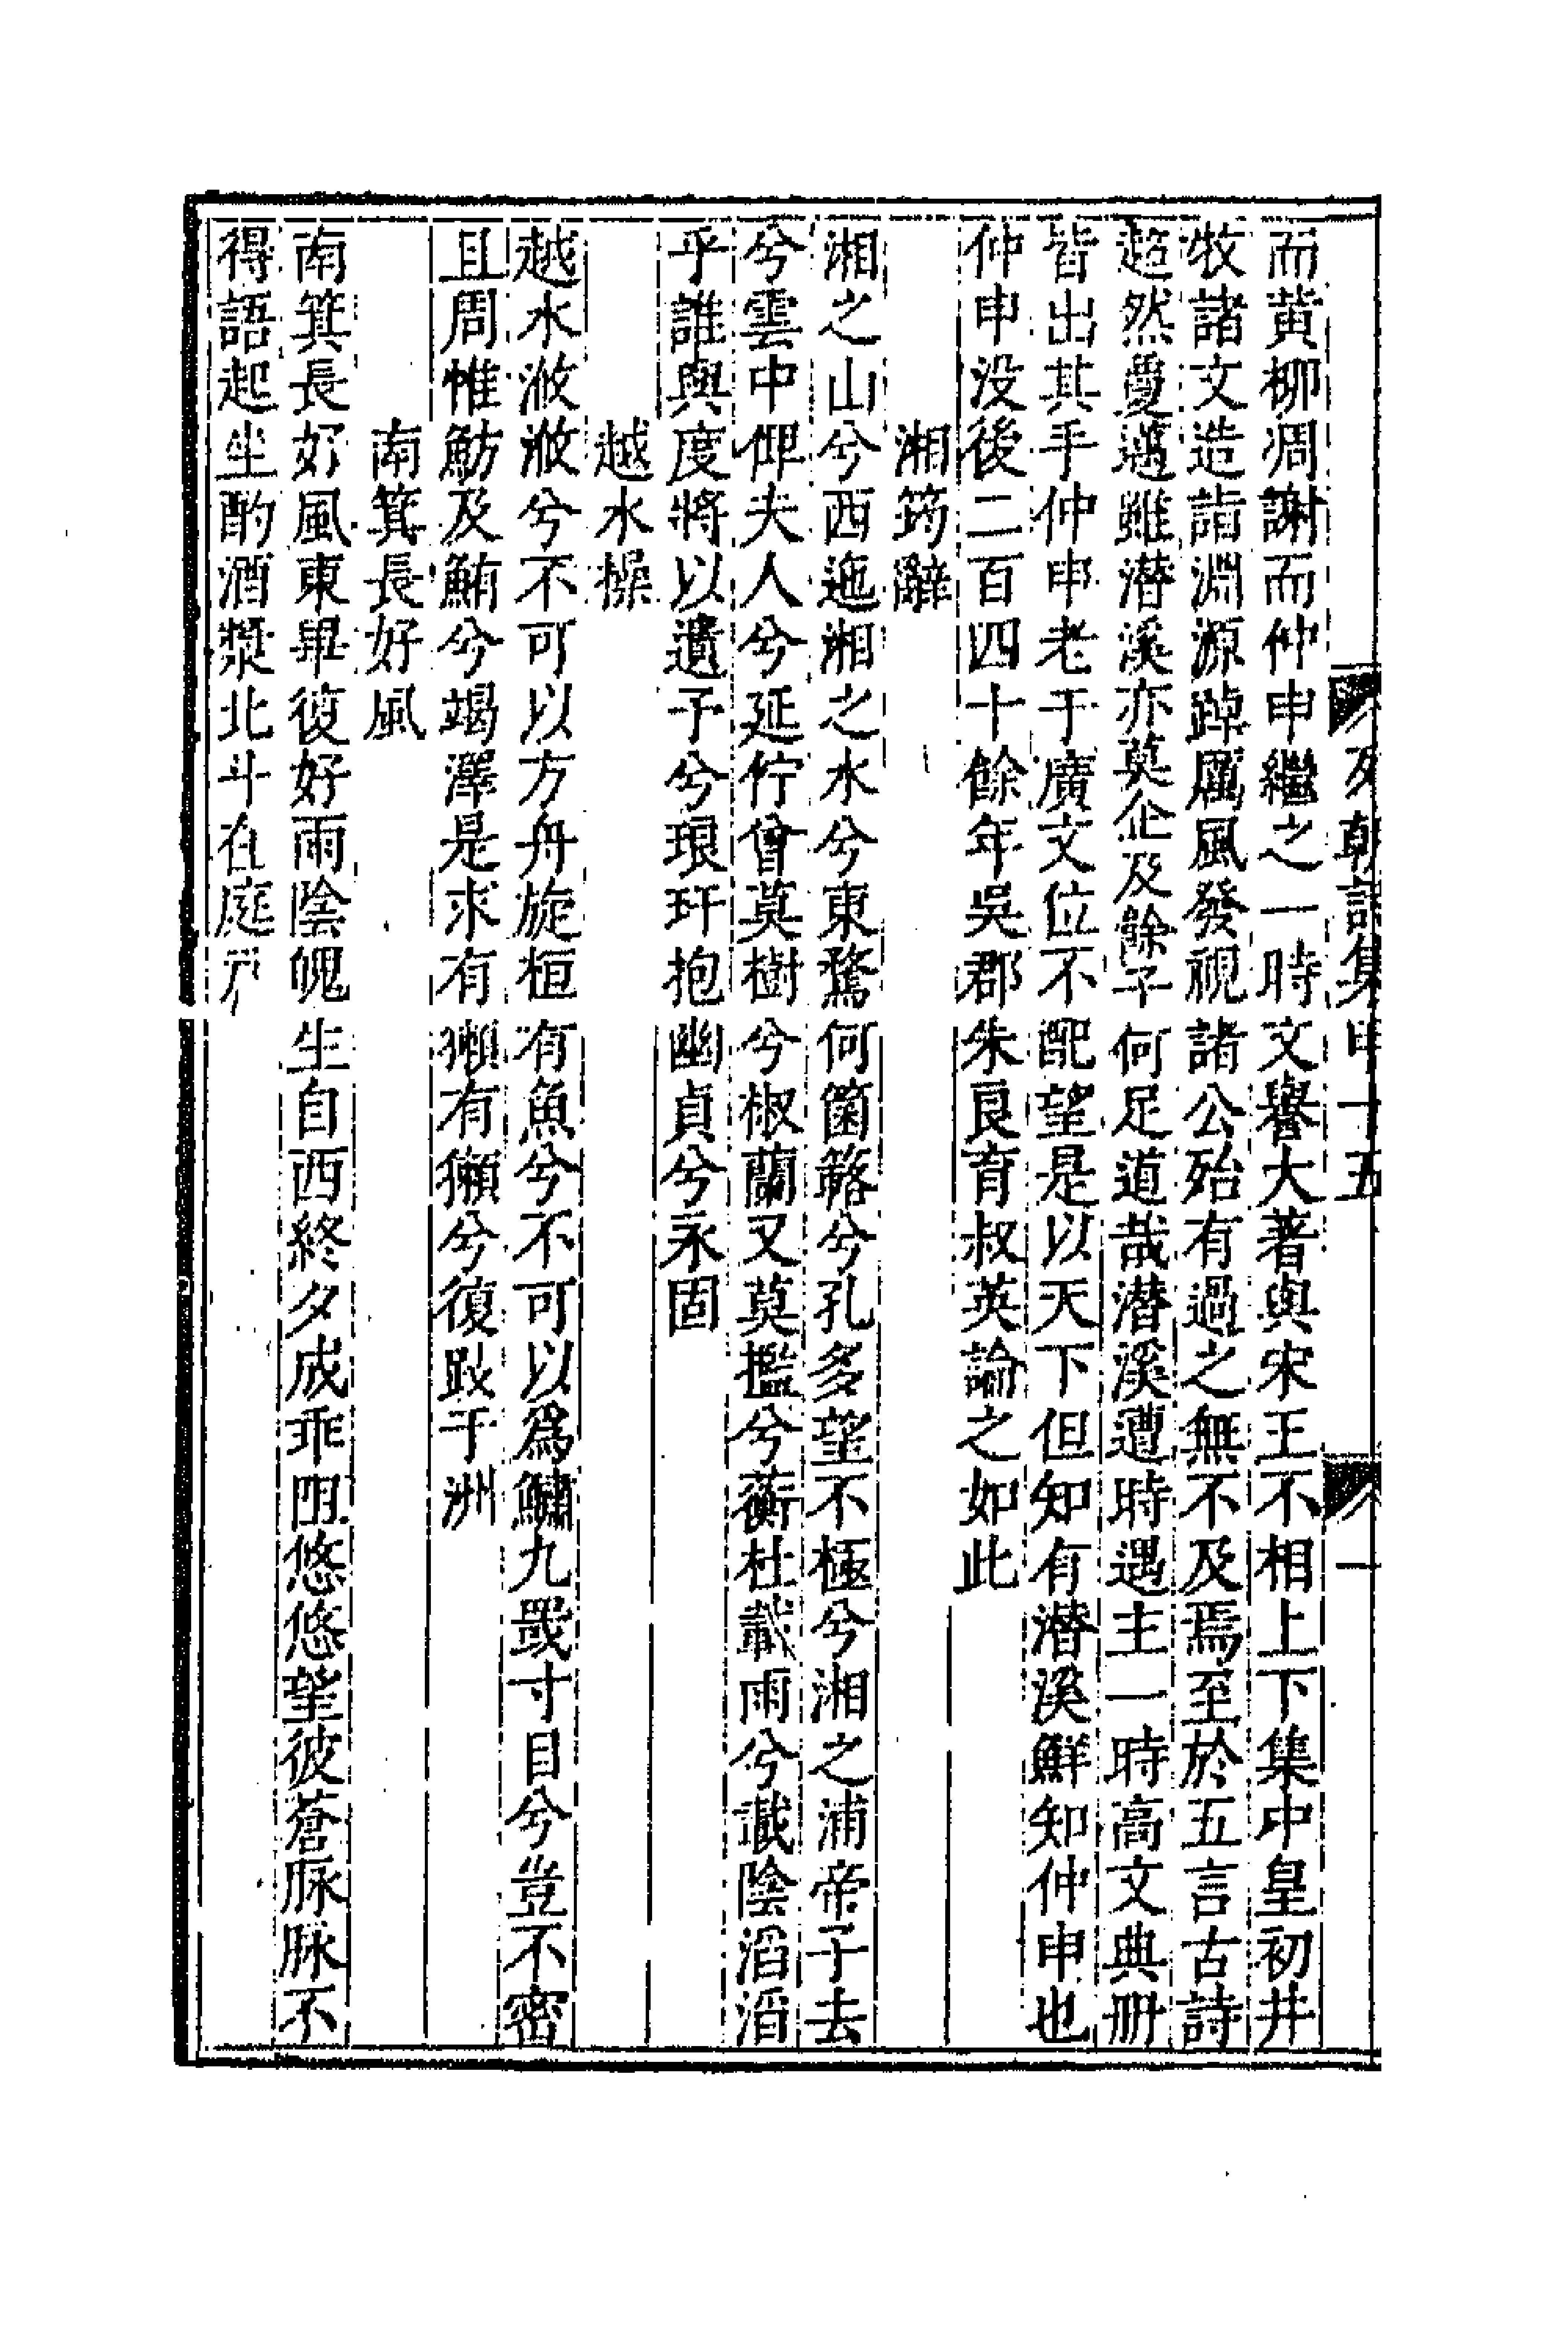 列朝詩集甲十五 一
而黄柳凋謝而仲申繼之一時文譽大著與宋王不相上下集中皇初井
牧諸文造詣淵源踔厲風發視諸公殆有過之無不及焉至於五言古詩
超然夐邁雖潛溪亦莫企及餘子何足道哉潛溪遭時遇主一時高文典冊
皆出其手仲申老于廣文位不配望是以天下但知有潛溪鮮知仲申也
仲申没後二百四十餘年吳郡朱良育叔英論之如此
湘筠辭
湘之山兮西迤湘之水兮東騖何箘簵兮孔多望不極兮湘之浦帝子去
兮雲中仰夫人兮延佇曾莫樹兮椒蘭又莫擥兮蘅杜載雨兮載陰滔滔
乎誰與度將以遺予兮琅玕抱幽貞兮永固
越水操
越水滺滺兮不可以方舟旋桓有魚兮不可以爲鱐九罭寸目兮豈不密
且周惟魴及鮪兮竭澤是求有獺有獺兮復殹于洲
南箕長好風
南箕長好風東畢復好雨陰魄生自西終夕成乖阻悠悠望彼蒼脉脉不
得語起坐酌酒漿北斗在庭戶